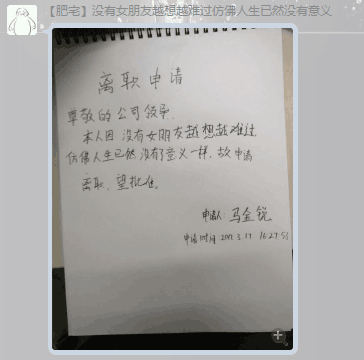 【肥宅】没有女朋友越想越难过仿佛人生已然没有意义
离职申请
尊敬的公司领导,
本人因没有女朋友越想越难过
仿佛人生已然没有了意义一样,故申请
离职,望批准。
申请人:马金锐
申请时间:2017.3.17 16:27:53